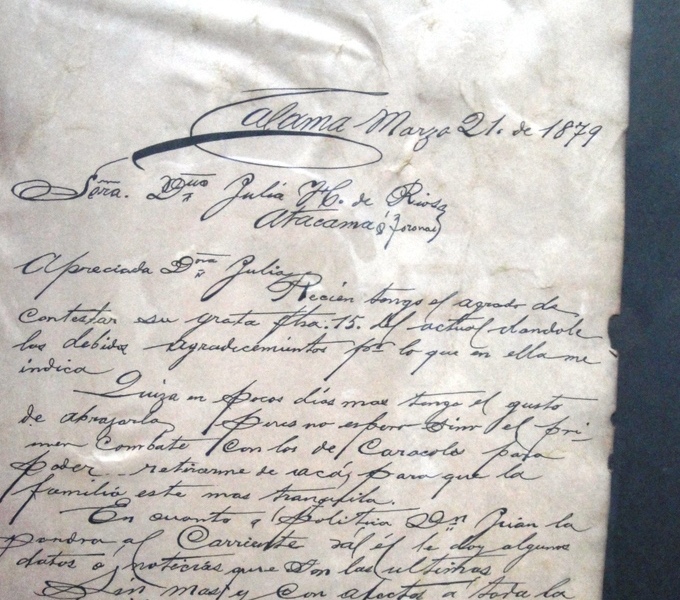 Calama Marzo 21. de 1879
Sora. Dña Julia H. de Rios
Atacama
Apreciada Dña Julia
Recien tengo el agrado de
contestar su grata fha. 15. del actual dandole
los debidos agradecimientos pr lo que en ella me
indica
Quiza en pocos dias mas tengo el gusto
de abrazarla, pues no espero sino el pri
mer combate con los de Caracoles para
poder retirarme de acá, para que la
familia este mas tranquila.
En cuanto a Politica Dn Juan la
pondra al Corriente al él le doy algunos
datos o noticias que son las ultimas
Sin mas y con afectos a toda la